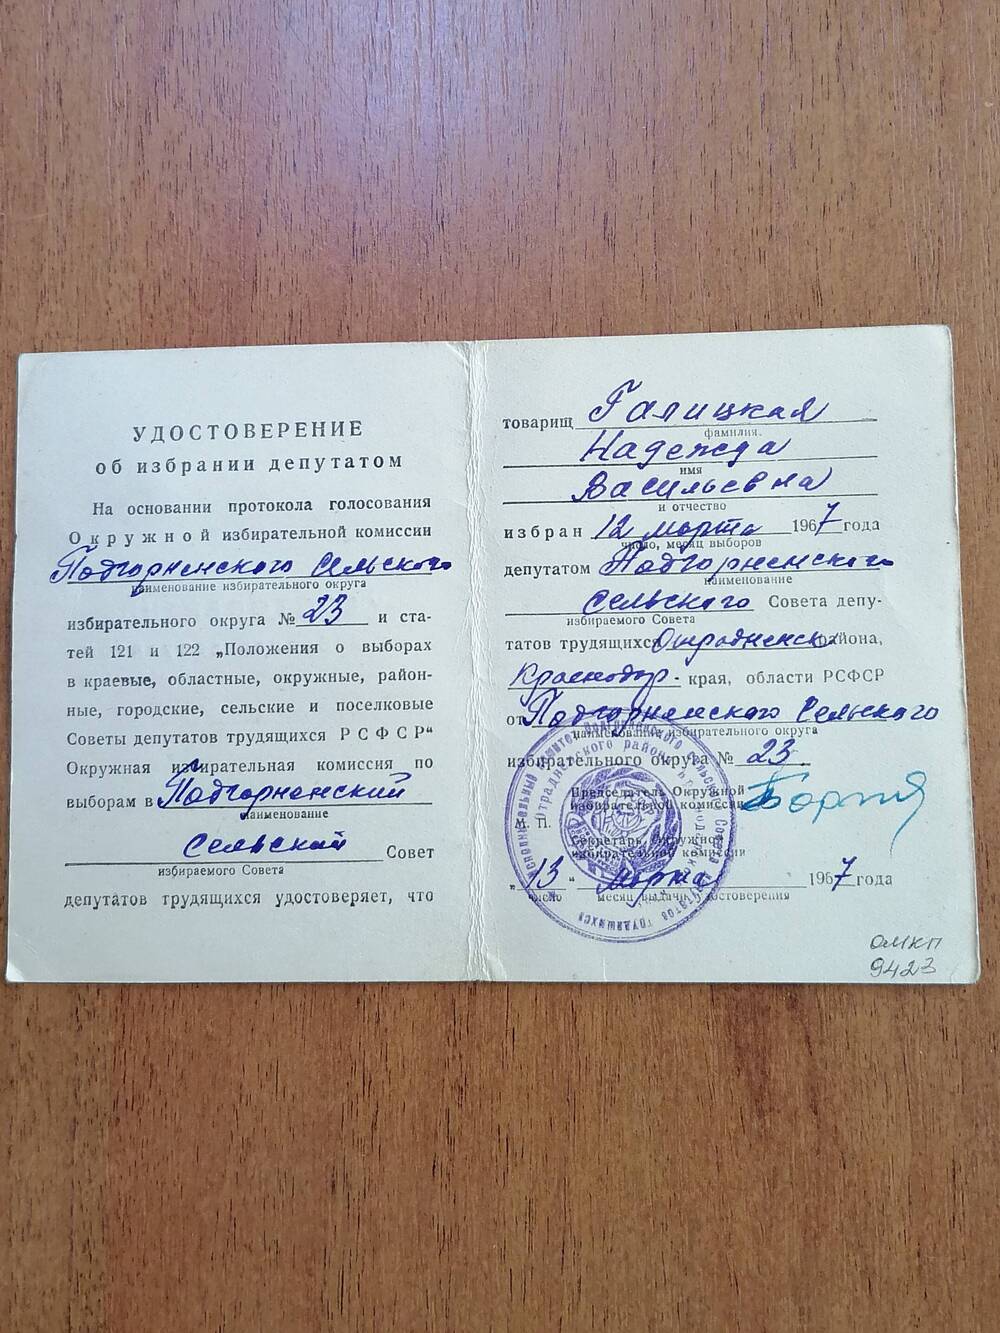 УДОСТОВЕРЕНИЕ
об избрании депутатом
На основании протокола голосования
Окружной избирательной комиссии
Подгорненского Сельского
наименование избирательного округа
избирательного округа № 23 и ста-
тей 121 и 122 „Положения о выборах
в краевые, областные, окружные, район-
ные, городские, сельские и поселковые
Советы депутатов трудящихся РСФСР“
Окружная избирательная комиссия по
выборам в Подгорненский
наименование
Сельский Совет
избираемого Совета
депутатов трудящихся удостоверяет, что
товарищ Галицкая
фамилия.
Надежда
имя
Васильевна
и отчество
избран 12 марта 1967 года
число, месяц выборов
депутатом Подгорненского
наименование
сельского Совета депу-
избираемого Совета
татов трудящихся Отрадненск района,
Краснодар. края, области РСФСР
от Подгорненского Сельского
наименование избирательного округа
избирательного округа № 23.
Председатель Окружной
избирательной комиссии
М. П.
Секретарь Окружной
избирательной комиссии
„13“ марта 1967 года
число месяц выдачи удостоверения
Исполнительный комитет Подгорненского сельского Совета депутатов трудящихся
Отрадненского района
ОМКП
9423